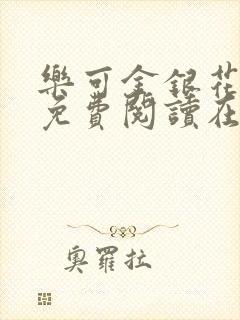 樂可金銀花
免費閱讀在
奧羅拉